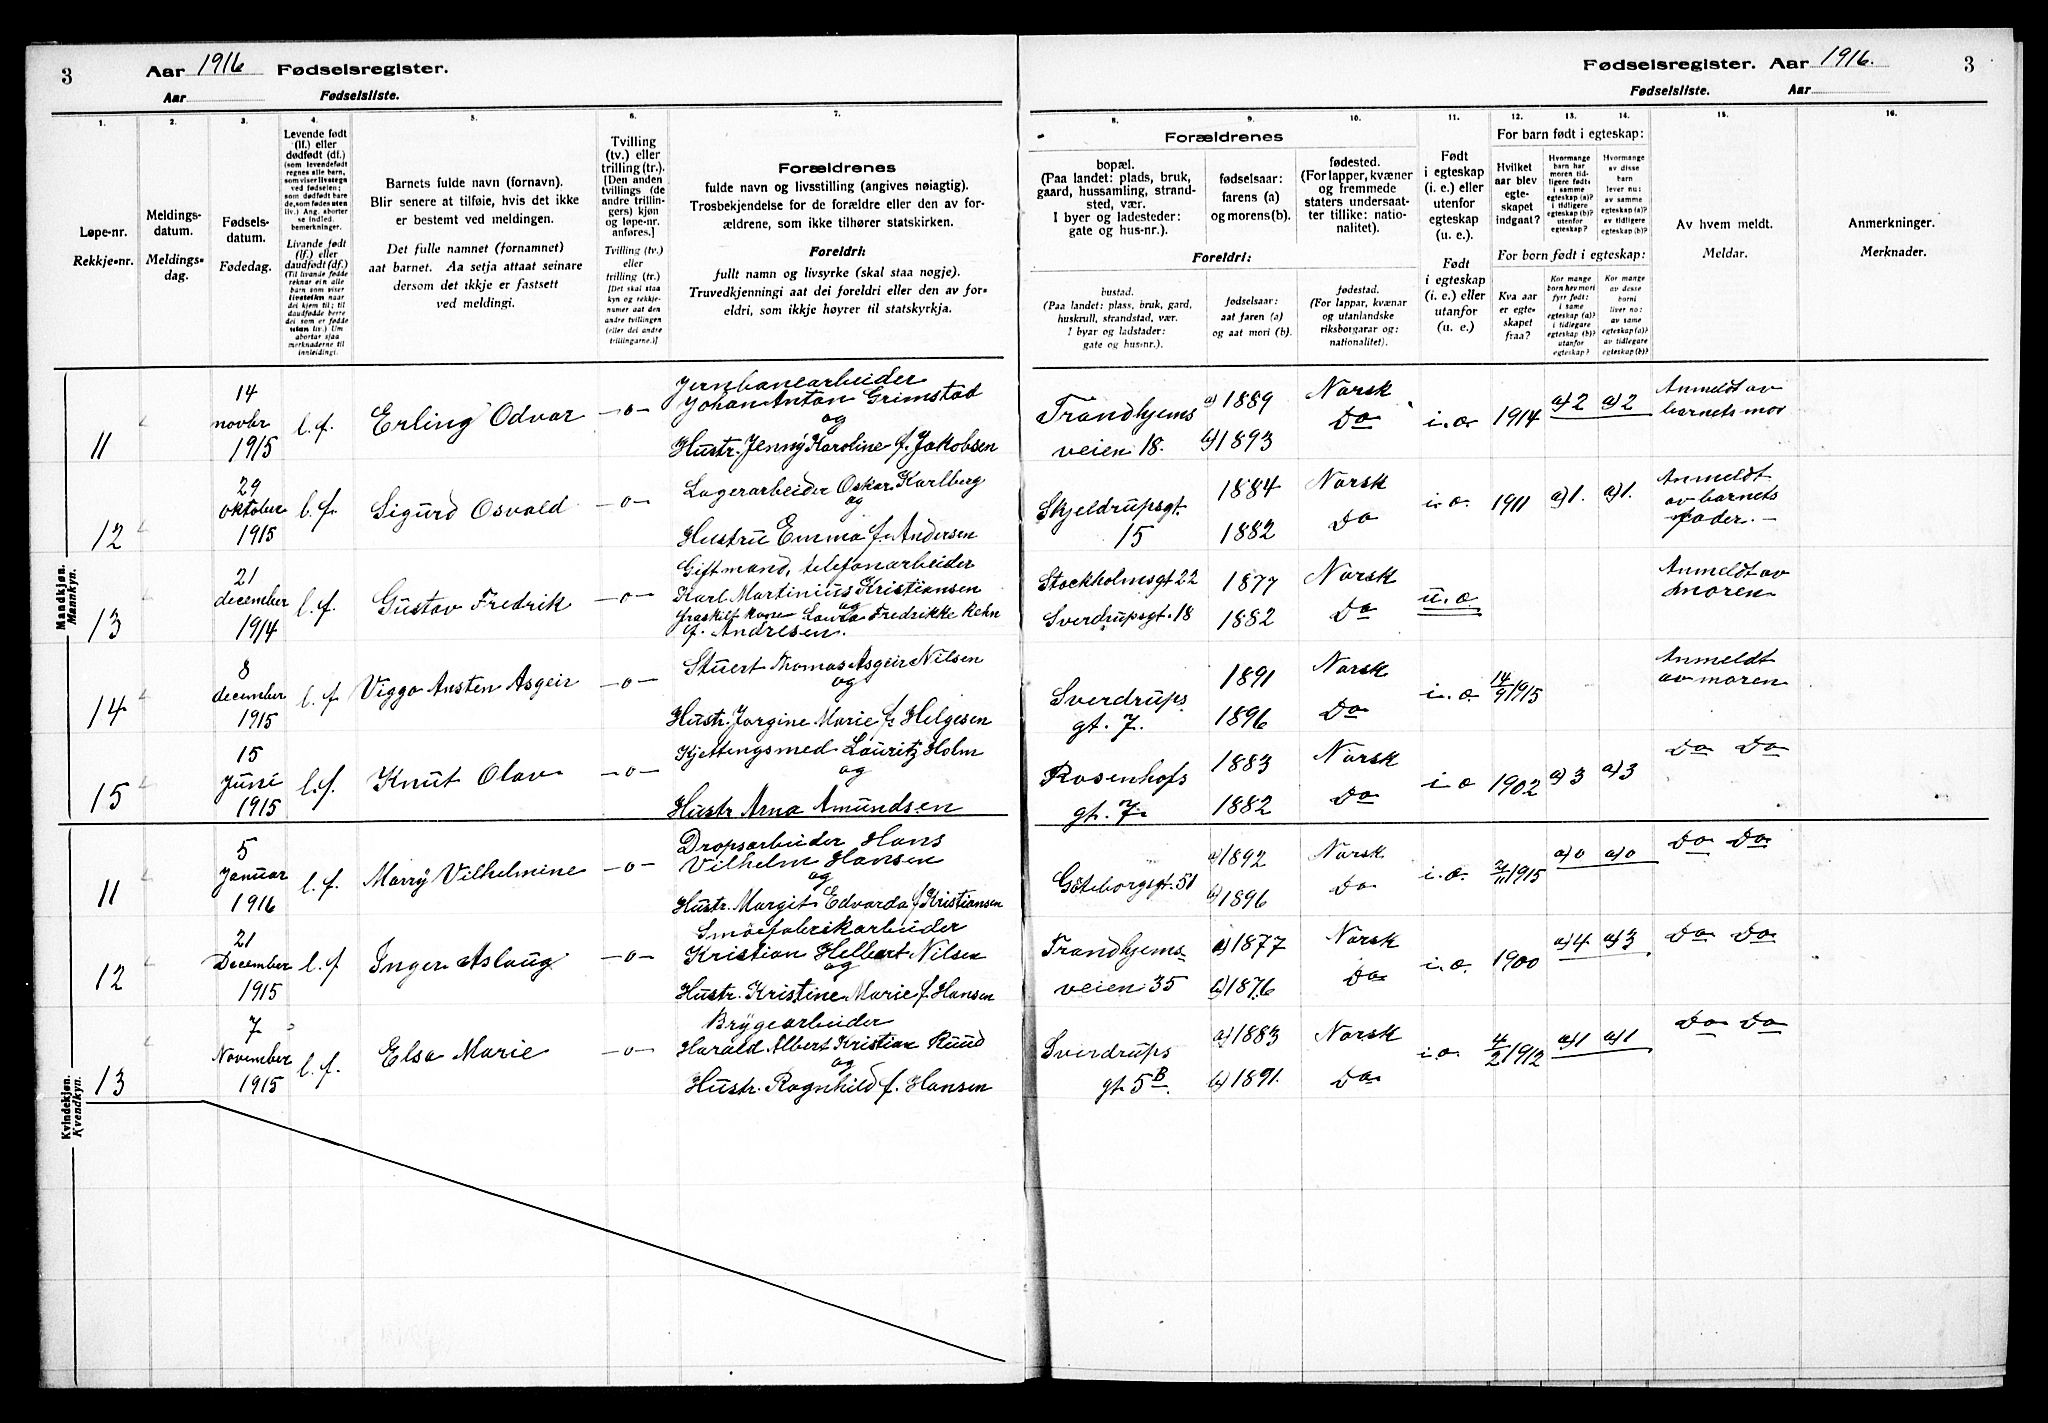 3
Aar 1916 Fødselsregister.
Aar Fødselsliste.
Fødselsregister. Aar 1916. 3
Fødselsliste. Aar
1.
Løpe-nr.
Rekkje-nr.
2.
Meldings-
datum.
Meldings-
dag.
3.
Fødsels-
datum.
Fødedag.
4.
Levende født
(lf.) eller
dødfødt (df.)
5.
Barnets fulde navn (fornavn).
Blir senere at tilføie, hvis det ikke
er bestemt ved meldingen.
Det fulle namnet (fornamnet)
aat barnet. Aa setja attaat seinare
dersom det ikkje er fastsett
ved meldingi.
6.
Tvilling
(tv.) eller
trilling (tr.).
[Den anden
tvillings (de
andre trillin-
gers) kjøn
og løpe-nr.
anføres.]
Tvilling (tv.)
eller
trilling (tr.)
[Det skal staa
kyn og rekkje-
numer aat den
andre tvillingen
(eller dei andre
trillingarne.)]
7.
Forældrenes
fulde navn og livsstilling (angives nøiagtig).
Trosbekjendelse for de forældre eller den av for-
ældrene, som ikke tilhører statskirken.
Foreldri:
fullt namn og livsyrke (skal staa nøgje).
Truvedkjenningi aat dei foreldri eller den av for-
eldri, som ikkje høyrer til statskyrkja.
Forældrenes
8.
bopæl.
(Paa landet: plads, bruk,
gaard, hussamling, strand-
sted, vær.
I byer og ladesteder:
gate og hus-nr.).
9.
fødselsaar:
farens (a)
og morens (b).
10.
fødested.
(For lapper, kvæner
og fremmede
staters undersaat-
ter tillike: natio-
nalitet).
Foreldri:
bustad.
(Paa landet: plass, bruk, gard,
huskrull, strandstad, vær.
I byar og ladstader:
gate og hus-nr.).
fødselsaar:
aat faren (a)
og aat mori (b).
fødestad.
(For lappar, kvænar
og utanlandske
riksborgarar og:
nationalitet).
11.
Født
i egteskap
(i. e.) eller
utenfor
egteskap
(u. e.).
Født
i egteskap
(i. e.) eller
utanfor
egteskap
(u. e.)
For barn født i egteskap:
12.
Hvilket
aar blev
egte-
skapet
indgaat?
13.
14.
For born født i egteskap:
Kva aar
er egte-
skapet
fraa?
15.
Av hvem meldt.
Meldar.
16.
Anmerkninger.
Merknader.
Mandkjøn.
Mannkyn.
11
14
novbr
1915
l.f.
Erling Odvar
-o-
Jernbanearbeider
Johan Anton Grimstad
og
Hustr. Jenny Karoline f. Jakobsen
Trondhjems
veien 18.
a) 1889
b) 1893
Norsk
Do
i.æ
1914
a) 2
a) 2
Anmeldt av
barnets mor
12
29
oktober
1915
l.f.
Sigurd Osvald
-o-
Lagerarbeider Oskar Karlberg
og
Hustru Emma f. Andersen
Skjeldrupsgt.
15
1884
1882
Norsk
Do
i æ.
1911
a) 1.
a) 1.
Anmeldt
av barnets
fader.
13
21
december
1914
l.f.
Gustav Fredrik
-o-
Gift mand, telefonarbeider
Karl Martinius Kristiansen
og
fraskilt kone Laura Fredrikke Rehn
f. Andresen.
Stockholmsgt 22
Sverdrupsgt. 18
1877
1882
Norsk
Do
u. æ
Anmeldt av
moren
14
8
december
1915
l.f
Viggo Ansten Asgeir
-o-
Stuert Thomas Asgeir Nilsen
og
Hustr. Jorgine Marie f. Helgesen
Sverdrups
gt. 7.
1891
1896
Norsk
Do
i. æ
14/9 1915
Anmeldt
av moren
15
15
Juni
1915
l.f.
Knut Olav
-o-
Kjettingsmed Lauritz Holm
og
Hustr Arna Amundsen
Rosenhofs
gt. 7.
1883
1882
Norsk
Do
i æ
1902
a) 3
a) 3
Do Do
Kvindekjøn.
Kvendkyn.
11
5
Januar
1916
l.f.
Marry Vilhelmine
-o-
Dropsarbeider Hans
Vilhelm Hansen
og
Hustr. Margit Edvarda f Kristiansen
Göteborgsgt. 51
a) 1892
b) 1896
Norsk
Do
i.æ.
2/11 1915
a) 0
a) 0
Do Do
12
21
December
1915
l.f
Inger Aslaug
-o-
Smøefabrikarbeider
Kristian Helbert Nilsen
og
Hustr. Kristine Marie f Hansen
Trondhjems-
veien 35
a) 1877
b) 1876
Norsk
Do
i.æ.
1900
a) 4
a) 3
Do Do
13
7
November
1915
l.f.
Elsa Marie
-o-
Brygearbeider
Harald Albert Kristian Ruud
og
Hustr. Ragnhild f. Hansen
Sverdrups
gt. 5 B.
a) 1883
b) 1891.
Norsk
Do
i æ.
4/2 1912
a) 1
a) 1
Do Do